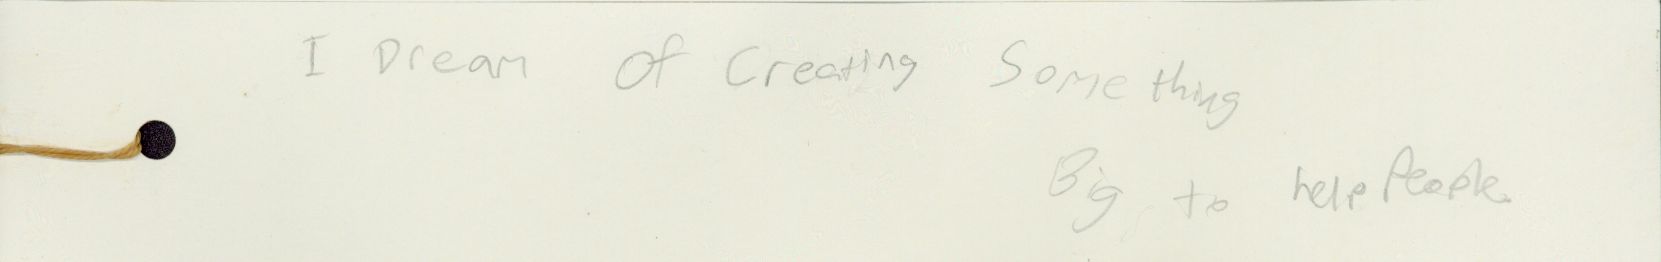 I Dream Of Creating Something
Big to help People.